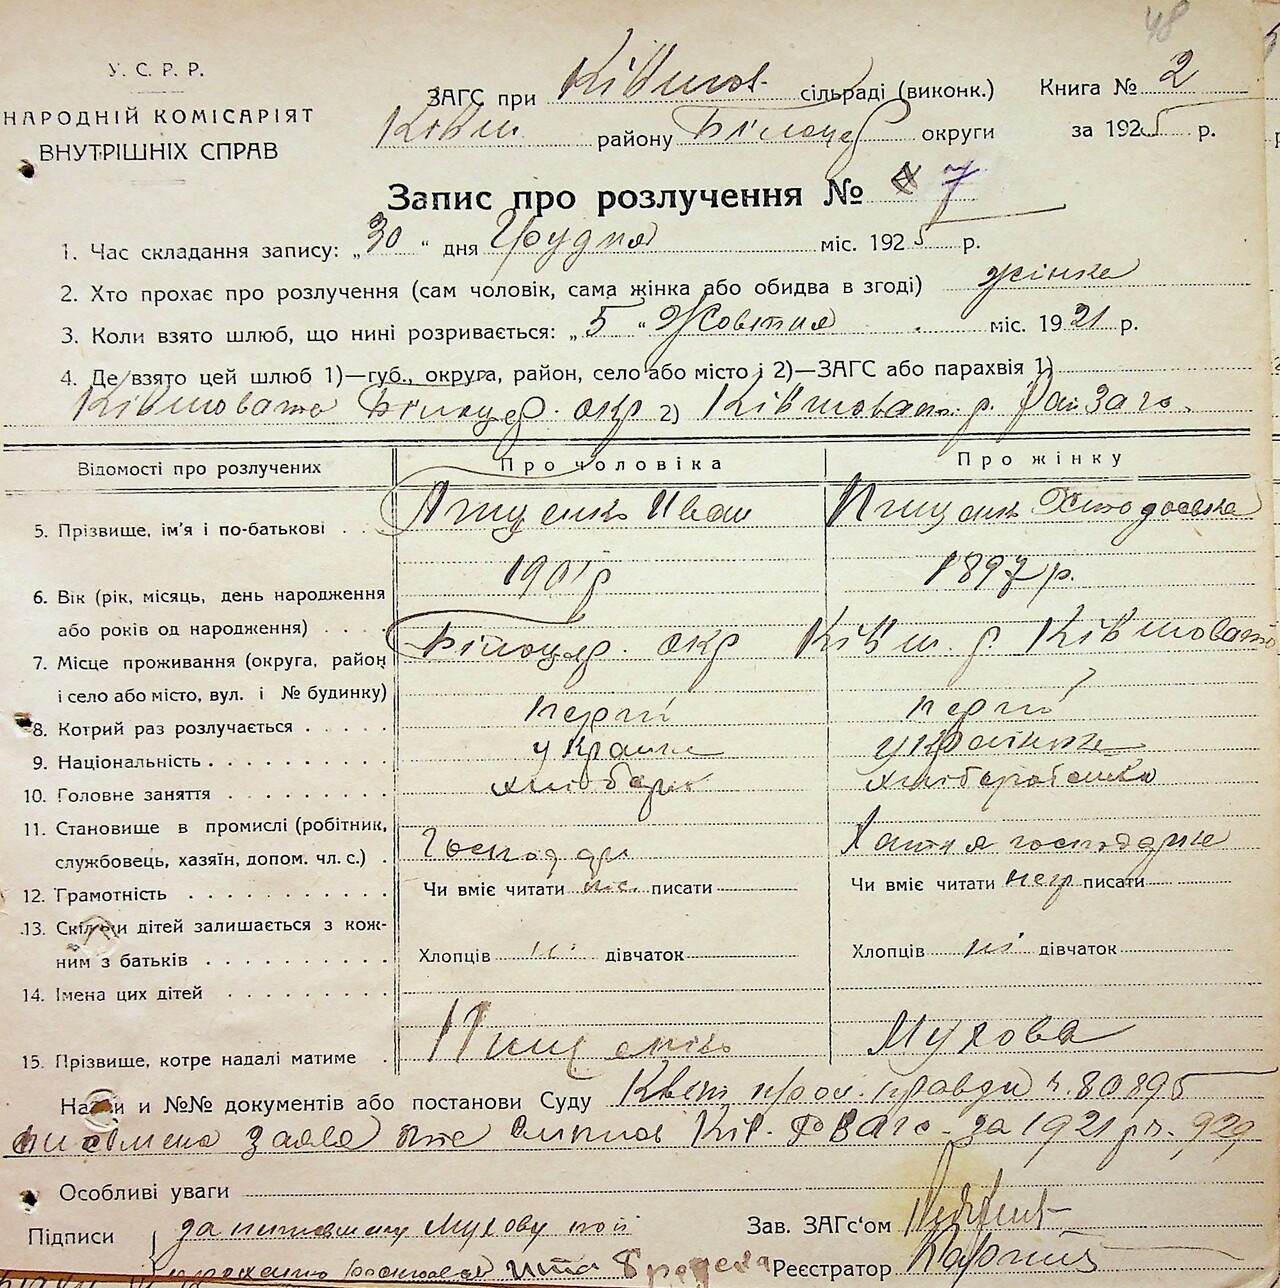 48
У. С. Р. Р.
НАРОДНІЙ КОМІСАРІЯТ
ВНУТРІШНІХ СПРАВ
ЗАГС при Ківшов. сільраді (виконк.) Книга № 2
Ківш. району Білоцер округи за 1925 р.
Запис про розлучення № 7
1. Час складання запису: „30" дня Грудня міс. 1925 р.
2. Хто прохає про розлучення (сам чоловік, сама жінка або обидва в згоді) жінка
3. Коли взято шлюб, що нині розривається: „5" Жовтня міс. 1921 р.
4. Де взято цей шлюб 1)—губ., округа, район, село або місто і 2)—ЗАГС або парахвія 1)
Ківшовата Білоцер. окр 2) Ківшоват. р.
Відомості про розлучених Про чоловіка Про жінку
5. Прізвище, ім'я і по-батькові Пищенко Иван Пищенко
6. Вік (рік, місяць, день народження 1901 р 1897 р.
або років од народження)
7. Місце проживання (округа, район Білоцер. окр Ківш. р. Ківшовата
і село або місто, вул. і № будинку)
8. Котрий раз розлучається перший перший
9. Національність українец українка
10. Головне заняття хлібороб хлібробка
11. Становище в промислі (робітник, Господар Хатня господарка
службовець, хазяїн, допом. чл. с.)
12. Грамотність Чи вміє читати писати Чи вміє читати негр писати
13. Скільки дітей залишається з кож-
ним з батьків Хлопців ні дівчаток Хлопців ні дівчаток
14. Імена цих дітей
15. Прізвище, котре надалі матиме Пищенко Мухова
Назви и №№ документів або постанови Суду Квит 80895
за 1921 р. 929
Особливі уваги
Підписи за Мухову Зав. ЗАГс'ом
Реєстратор